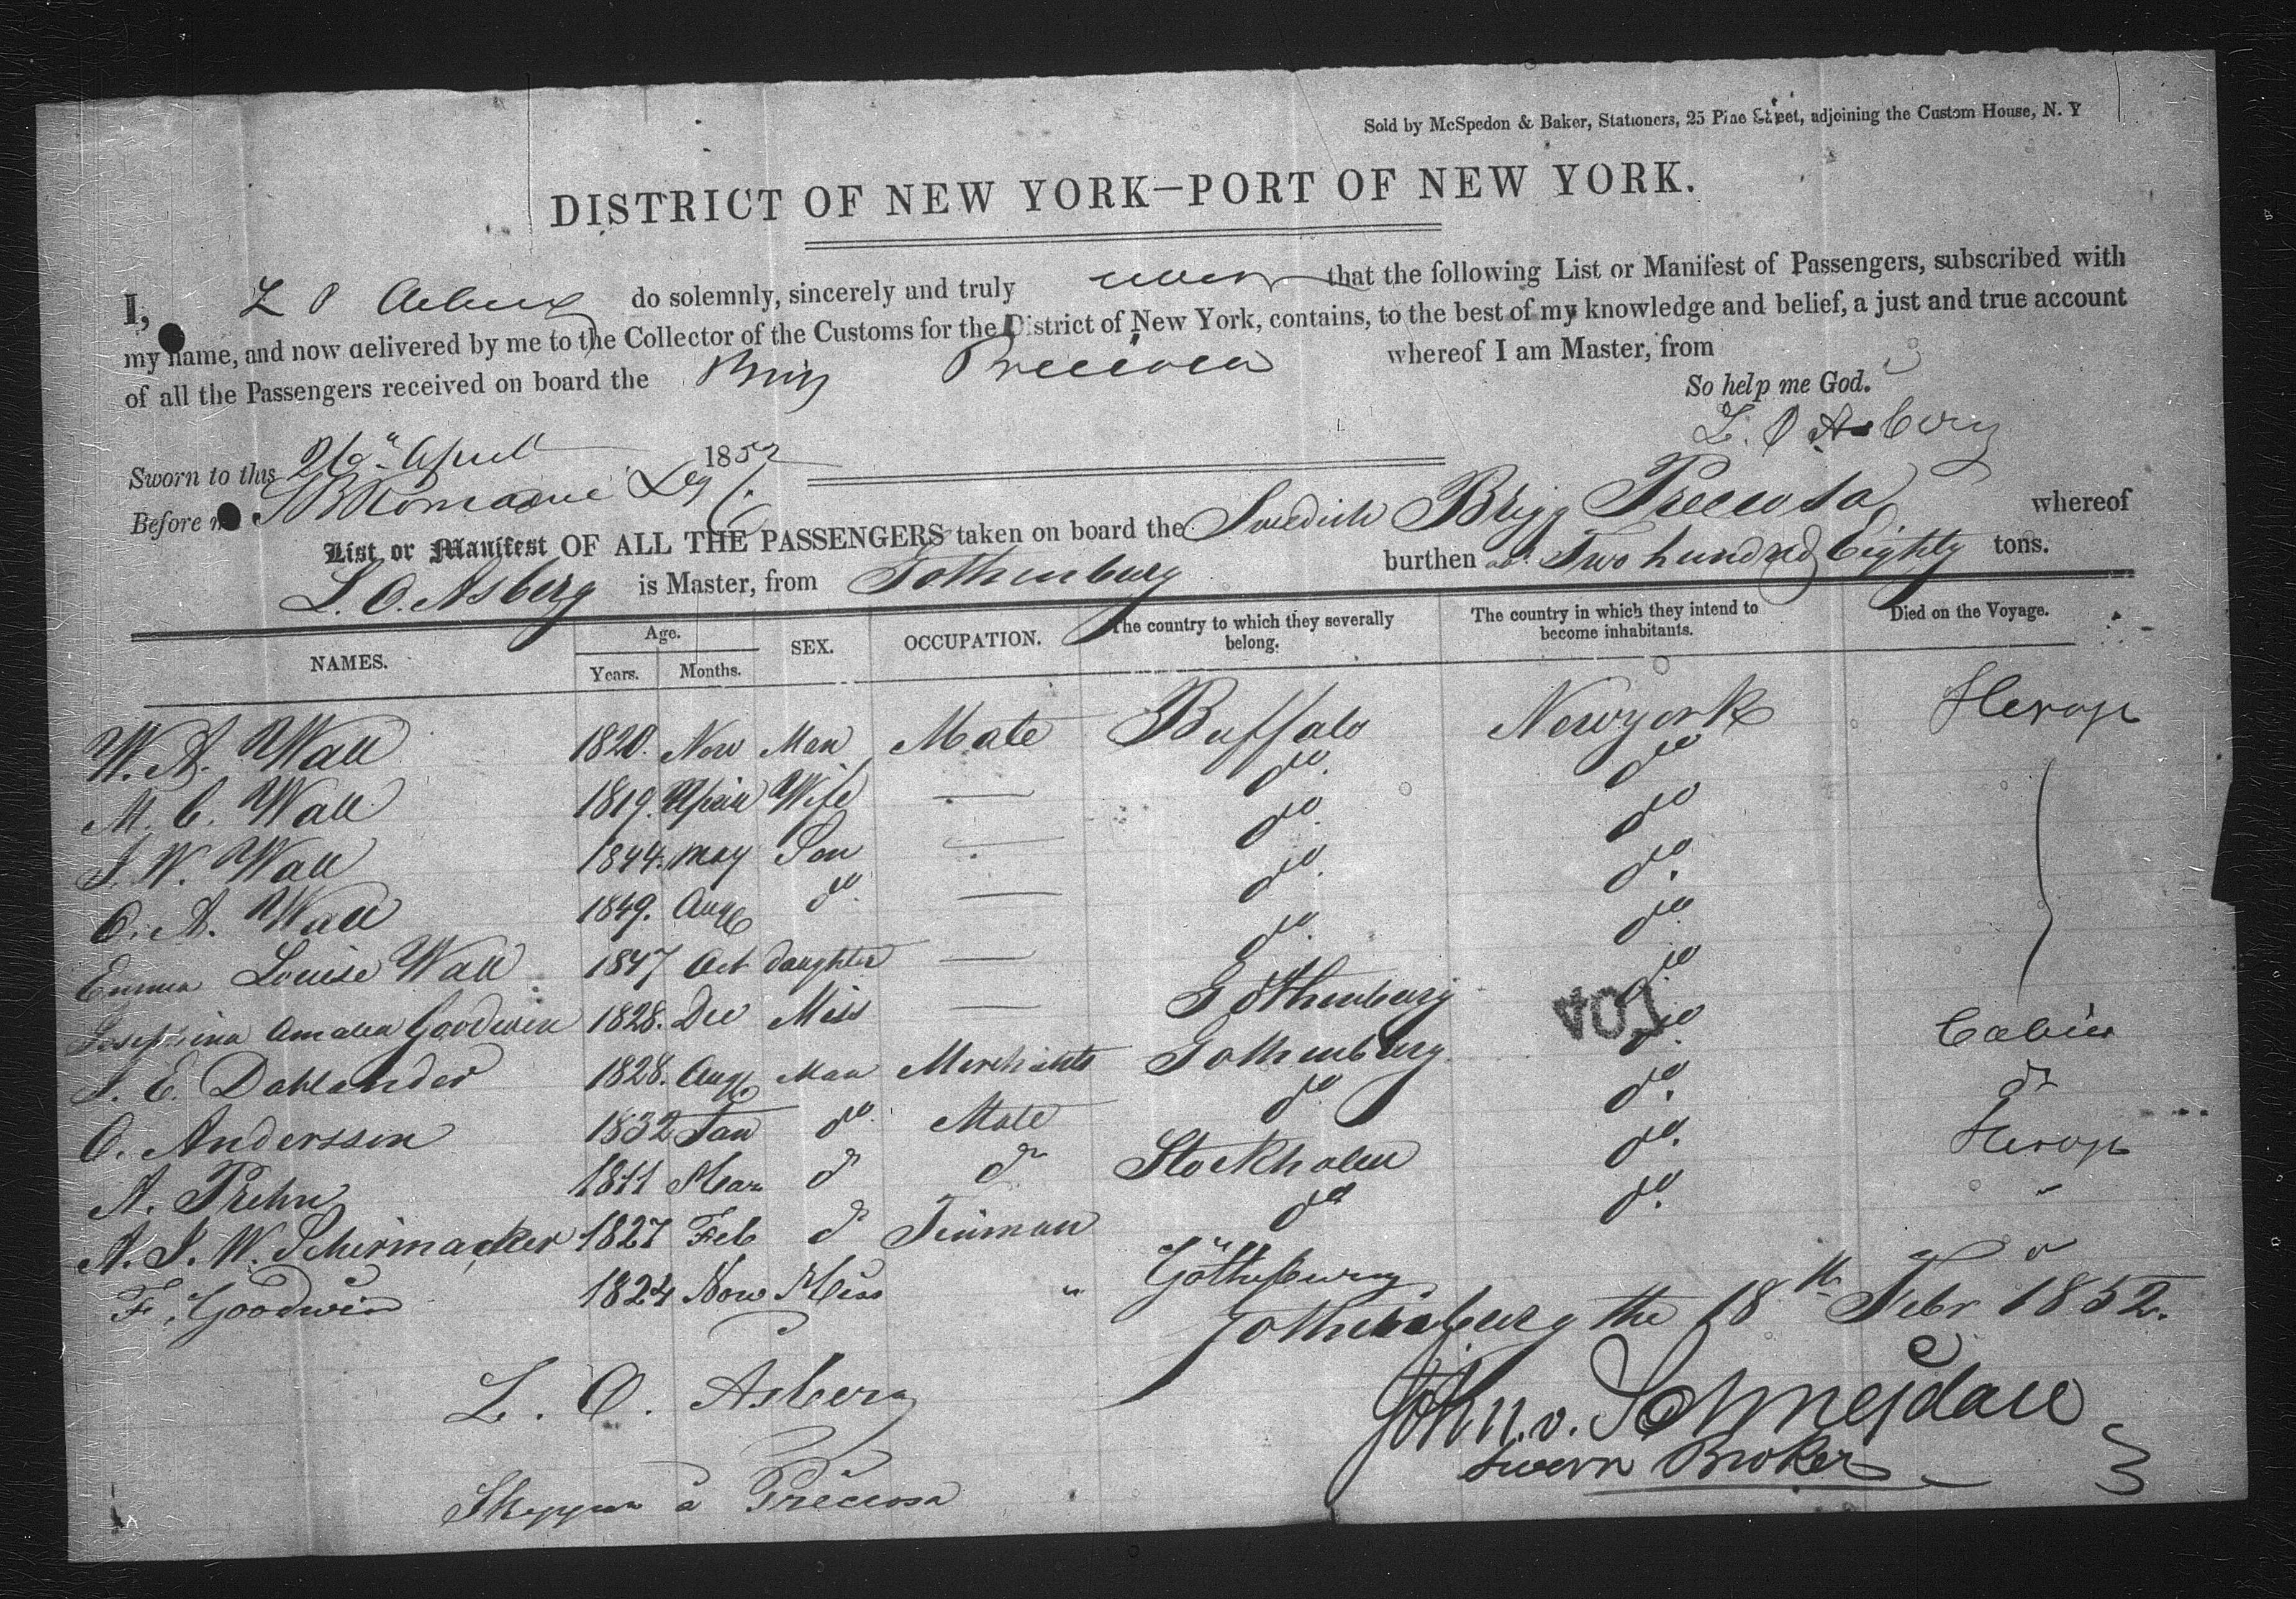 Sold by McSpedon & Baker, Stationers, 25 Pine Street, adjoining the Custom House, N. Y
DISTRICT OF NEW YORK—PORT OF NEW YORK.
I, L O Asberg do solemnly, sincerely and truly swear that the following List or Manifest of Passengers, subscribed with
my name, and now delivered by me to the Collector of the Customs for the District of New York, contains, to the best of my knowledge and belief, a just and true account
of all the Passengers received on board the Brig Preciosa whereof I am Master, from
So help me God.
L. O Asberg
Sworn to this 26" April 1852
Before me
List or Manifest OF ALL THE PASSENGERS taken on board the Swedish Brigg Preciosa whereof
L. O. Asberg is Master, from Gothenburg burthen Two hundred Eighty tons.
NAMES. Age. Years. Months. SEX. OCCUPATION. The country to which they severally belong. The country in which they intend to become inhabitants. Died on the Voyage.
W. A. Wall 1820. Nov Man Mate Buffalo Newyork
M. C. Wall 1819. April Wife — do. do
J. W. Wall 1844. may Son — do. do
C. A. Wall 1849. Aug do. — do. do.
Emma Louise Wall 1847 Oct daughter — do. do.
Josephina Amalia Goodwin 1828. Dec Miss — Gothenburg do.
J. E. Dahlander 1828. Aug Man Merchants Gothenburg. do. Cabin
O. Andersson 1832 Jan do. Mate do do. do
A. Prehn 1811 Mar do do Stockholm do.
A. J. W. Schirmacker 1827 Feb do Tinman do do. "
F. Goodwin 1824 Nov Miss " Götheburg
104
Gothenburg the 18th Febr 1852.
L. O. Asberg
John. v. Schneidau
Sworn Broker
Skeppare å Preciosa